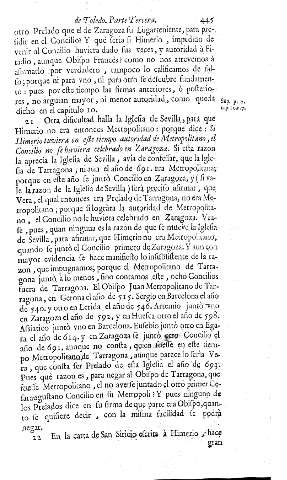 de Toledo. Parte Tercera. 445
otro Prelado que el de Zaragoza su Lugarteniente, para pre-
sidir en el Concilio? Y que seria si Himerio, impedido de
venir al Concilio huviera dado sus veces, y autoridad à Fi-
tadio, aunque Obispo Francés? como no nos atrevemos à
afirmarlo por verdadero, tampoco lo calificamos de fal-
so; porque ni para uno, ni para otro se descubre fundamen-
to: pues por este tiempo las firmas anteriores, ò posterio-
res, no arguian mayor, ni menor autoridad, como queda
dicho en el capitulo 10.
21 Otra dificultad halla la Iglesia de Sevilla, para que
Himerio no era entonces Metropolitano: porque dice: Si
Himerio tuviera en este tiempo autoridad de Metropolitano, el
Concilio no se huviera celebrado en Zaragoza. Si esta razon
la aprecia la Iglesia de Sevilla, avia de confesar, que la Igle-
sia de Tarragona, ni aun el año de 691. era Metropolitana;
porque en este año se juntò Concilio en Zaragoza, y si va-
le la razon de la Iglesia de Sevilla será preciso afirmar, que
Vera, el qual entonces era Prelado de Tarragona, no era Me-
tropolitano; porque si lográra la autoridad de Metropolita-
no, el Concilio no le huviera celebrado en Zaragoza. Vea-
se, pues, quan ninguna es la razon de que se mueve la Iglesia
de Sevilla, para afirmar, que Himerio no era Metropolitano,
quando se juntò el Concilio primero de Zaragoza. Y aun con
mayor evidencia se hace manifiesto la insubsistente de la ra-
zon, que impugnamos; porque el Metropolitano de Tarra-
gona juntò à lo menos, sino contamos este, ocho Concilios
fuera de Tarragona. El Obispo Juan Metropolitano de Tar-
ragona, en Gerona el año de 515. Sergio en Barcelona el año
de 540. y otro en Lerida el año de 546. Artemio juntó uno
en Zaragoza el año de 592. y en Huesca otro el año de 598.
Asiatico juntò uno en Barcelona. Eusebio juntó otro en Ega-
ra el año de 614. y en Zaragoza se juntò otro Concilio el
año de 691. aunque no consta, quien fuesse en este tiem-
po Metropolitano de Tarragona, aunque parece lo seria Ve-
ra, que consta ser Prelado de esta Iglesia el año de 693.
Pues què razon es, para negar al Obispo de Tarragona, que
fuesse Metropolitano, el no averse juntado el otro primer Ce-
saraugustano Concilio en su Metropoli? Y pues ninguno de
los Prelados dice en su firma de que parte era Obispo, quan-
to se quisiere decir, con la misma facilidad se podrá
negar.
22 En la carta de San Siricio escrita à Himerio, hace
gran